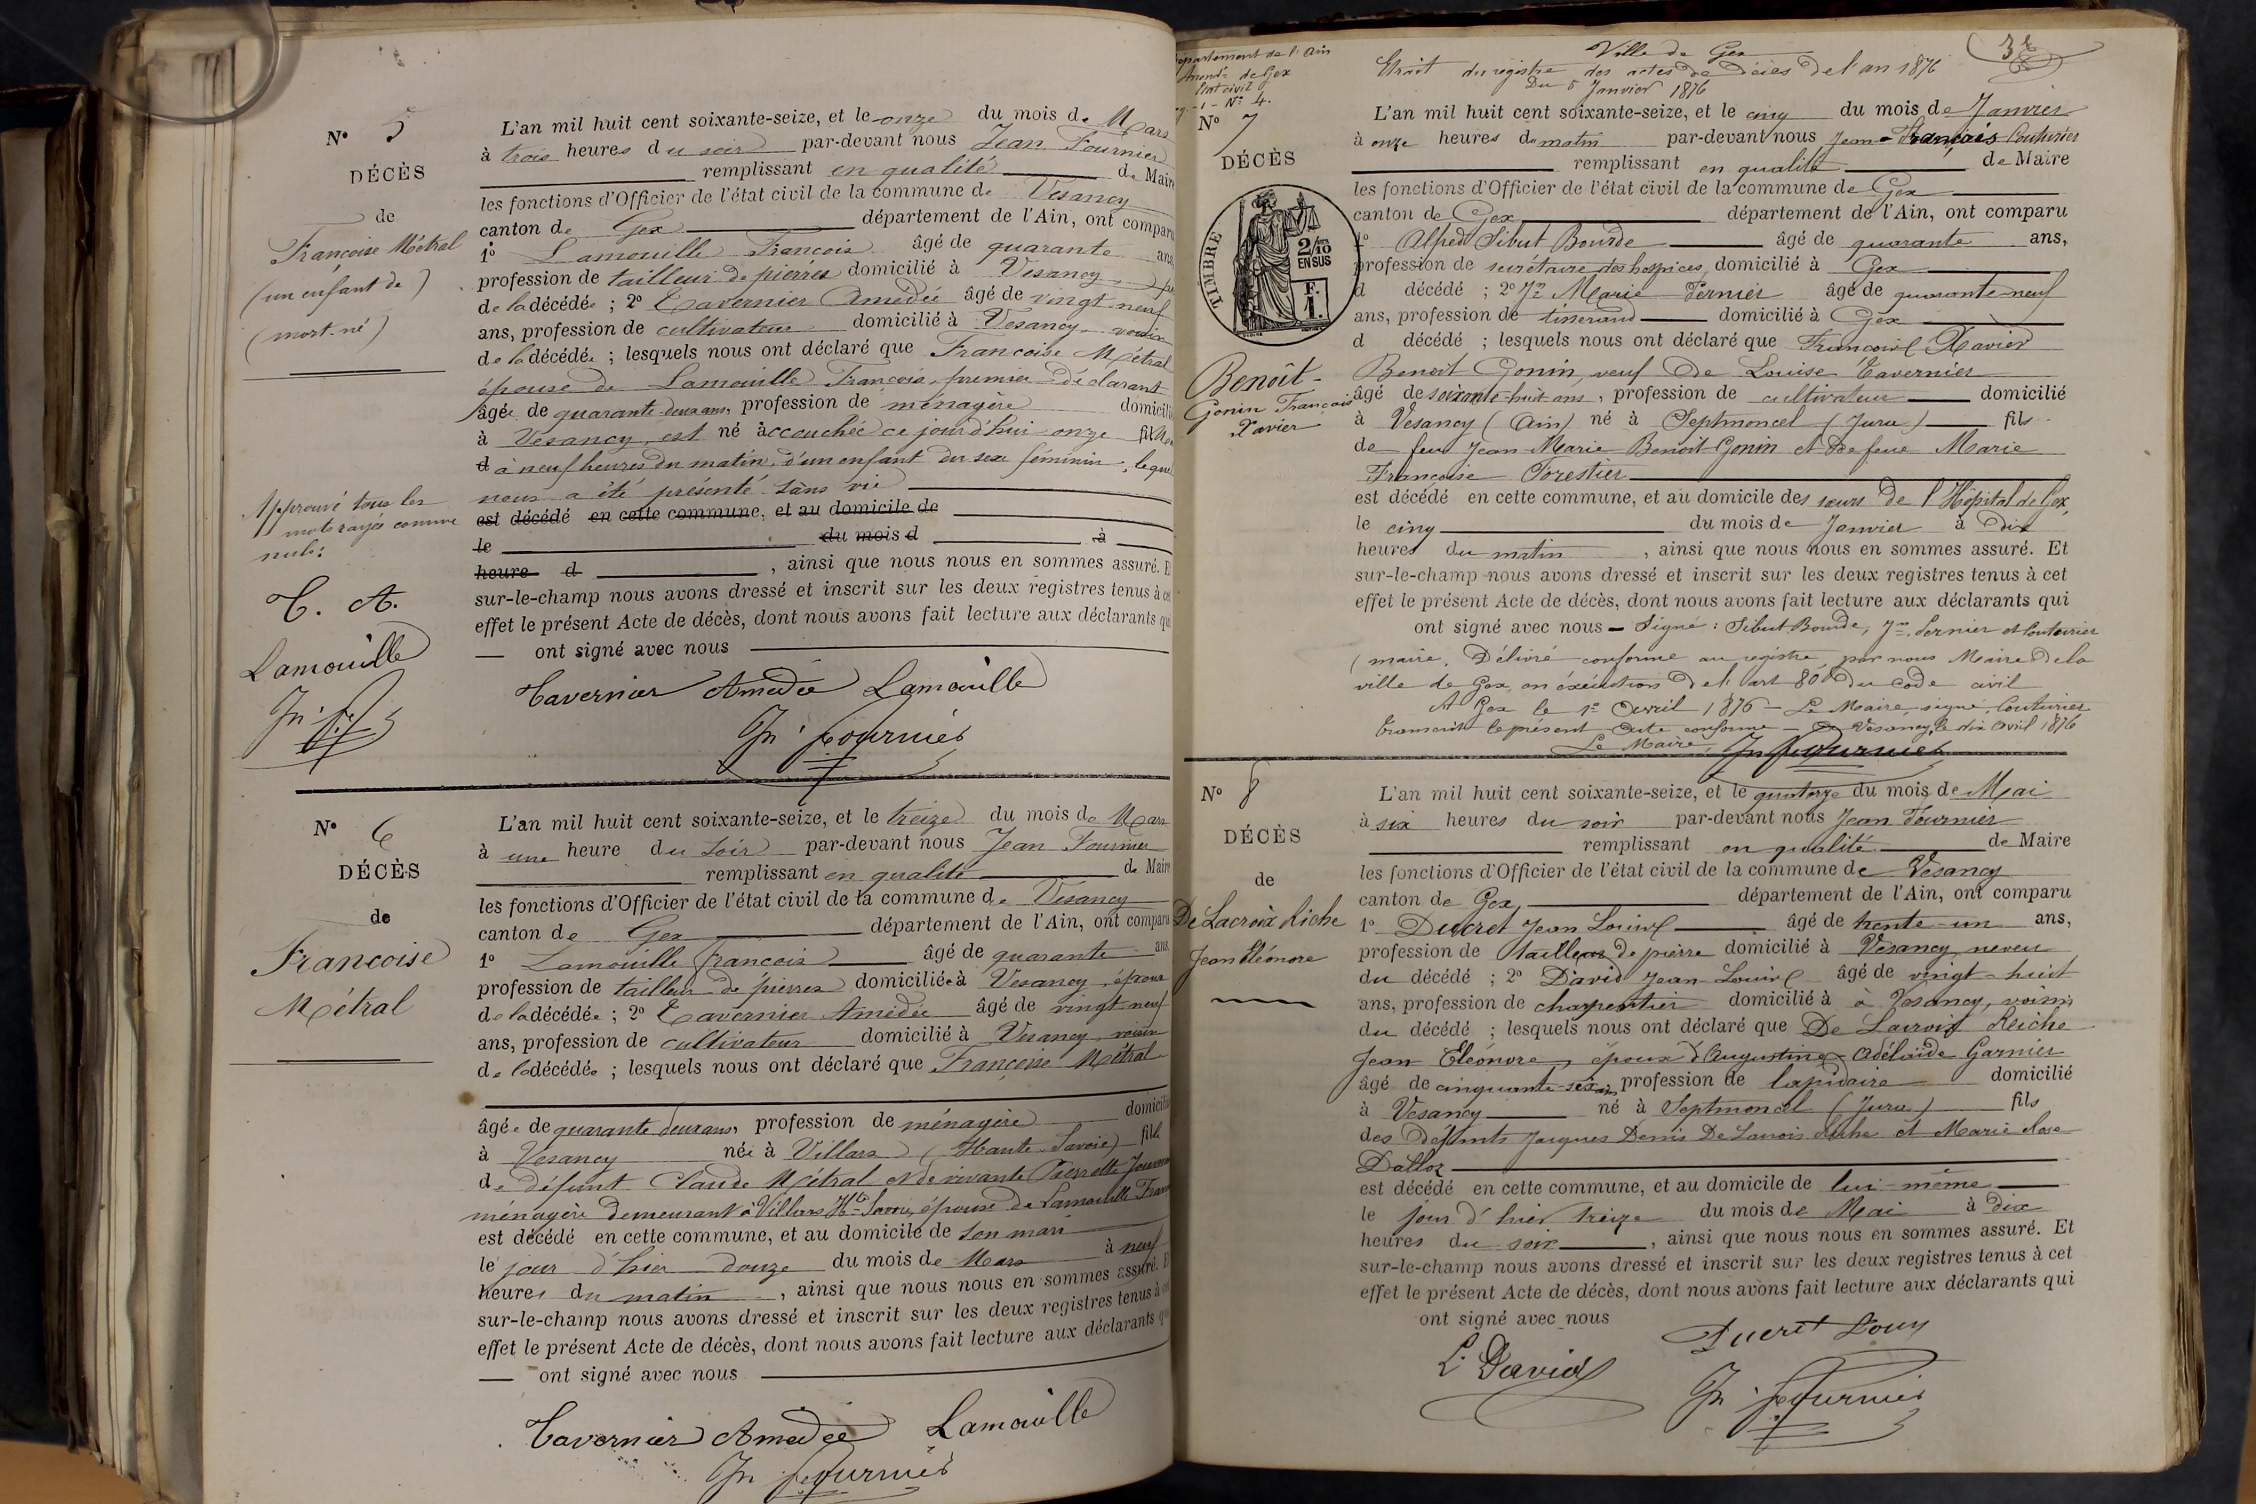 N° 5
DÉCÈS
de
Françoise Métral
(un enfant de)
(mort-né)
Approuvé tous les
mots rayés comme
nuls:
T. A.
Lamouille
Jn. F.
L'an mil huit cent soixante-seize, et le onze du mois de Mars
à trois heures du soir par-devant nous Jean Fournier
remplissant en qualité de Maire
les fonctions d'Officier de l'état civil de la commune de Vesancy
canton de Gex département de l'Ain, ont comparu
1° Lamouille François âgé de quarante ans,
profession de tailleur de pierres domicilié à Vesancy
de la décédée ; 2° Tavernier Amédée âgé de vingt neuf
ans, profession de cultivateur domicilié à Vesancy voisin
de la décédée ; lesquels nous ont déclaré que Françoise Métral
épouse de Lamouille François, premier déclarant
âgée de quarante deux ans, profession de ménagère domicilié
à Vesancy, est né accouchée ce jourd'hui onze
d à neuf heures du matin, d'un enfant du sexe féminin, lequel
nous a été présenté sans vie
est décédé en cette commune, et au domicile de
le du mois d à
heure d , ainsi que nous nous en sommes assuré. E
sur-le-champ nous avons dressé et inscrit sur les deux registres tenus à cet
effet le présent Acte de décès, dont nous avons fait lecture aux déclarants qui
ont signé avec nous
Tavernier Amédée Lamouille
Jn. Fournier
N° 6
DÉCÈS
de
Françoise
Métral
L'an mil huit cent soixante-seize, et le treize du mois de Mars
à une heure du soir par-devant nous Jean Fournier
remplissant en qualité de Maire
les fonctions d'Officier de l'état civil de la commune de Vesancy
canton de Gex département de l'Ain, ont comparu
1° Lamouille François âgé de quarante ans
profession de tailleur de pierres domiciliée à Vesancy, époux
de la décédée ; 2° Tavernier Amédée âgé de vingt neuf
ans, profession de cultivateur domicilié à Vesancy, voisin
de la décédée ; lesquels nous ont déclaré que Françoise Métral
âgée de quarante deux ans, profession de ménagère domicilié
à Vesancy née à Villars (Haute Savoie) fille
de défunt Claude Métral et de vivante Pierrette
ménagère demeurant à Villars Hte Savoie, épouse de Lamouille
est décédé en cette commune, et au domicile de son mari
le jour d'hier douze du mois de Mars à neuf
heures du matin , ainsi que nous nous en sommes assuré. E
sur-le-champ nous avons dressé et inscrit sur les deux registres tenus à cet
effet le présent Acte de décès, dont nous avons fait lecture aux déclarants qui
ont signé avec nous
Tavernier Amédée Lamouille
Jn. Fournier
département de l'Ain
de Gex
Etat civil
N° 4.
Ville de Gex
Extrait du registre des actes de décès de l'an 1876
Du 5 Janvier 1876
N° 7
DÉCÈS
TIMBRE
2/10
EN SUS
F.
1.
Benoît-
Gonin François
Xavier
L'an mil huit cent soixante-seize, et le cinq du mois de Janvier
à onze heures du matin par-devant nous Jean-François Couturier
remplissant en qualité de Maire
les fonctions d'Officier de l'état civil de la commune de Gex
canton de Gex département de l'Ain, ont comparu
1° Alfred Sibut Bourde âgé de quarante ans,
profession de secrétaire des hospices domicilié à Gex
d décédé ; 2° Jn Marie Pernier âgé de quarante neuf
ans, profession de tisserand domicilié à Gex
d décédé ; lesquels nous ont déclaré que François Xavier
Benoit Gonin, veuf de Louise Tavernier
âgé de soixante-huit ans, profession de cultivateur domicilié
à Vesancy (Ain) né à Septmoncel (Jura) fils
de feu Jean Marie Benoit Gonin et de feue Marie
Françoise Forestier
est décédé en cette commune, et au domicile des sœurs de l'Hôpital de Gex,
le cinq du mois de Janvier à dix
heures du matin , ainsi que nous nous en sommes assuré. Et
sur-le-champ nous avons dressé et inscrit sur les deux registres tenus à cet
effet le présent Acte de décès, dont nous avons fait lecture aux déclarants qui
ont signé avec nous – Signé : Sibut Bourde, Jn Pernier et Couturier
maire. Délivré conforme au registre par nous Maire de la
ville de Gex en exécution de l'art 80 du code civil
A Gex le 1er Avril 1876 – Le Maire, signé, Couturier
Transcrit le présent acte conforme – à Vesancy, le dix Avril 1876
Le Maire, Jn Fournier
N° 8
DÉCÈS
de
De Lacroix Riche
Jean Eléonore
L'an mil huit cent soixante-seize, et le quatorze du mois de Mai
à six heures du soir par-devant nous Jean Fournier
remplissant en qualité de Maire
les fonctions d'Officier de l'état civil de la commune de Vesancy
canton de Gex département de l'Ain, ont comparu
1° Ducret Jean Louis âgé de trente-un ans,
profession de tailleur de pierre domicilié à Vesancy, neveu
du décédé ; 2° David Jean-Louis âgé de vingt-huit
ans, profession de charpentier domicilié à à Vesancy, voisin
du décédé ; lesquels nous ont déclaré que De Lacroix Reiche
Jean Eléonore, époux d'Augustine Adélaïde Garnier
âgé de cinquante-six ans profession de lapidaire domicilié
à Vesancy né à Septmoncel (Jura) fils
des défunts Jacques Denis De Lacroix Riche et Marie Rose
Dalloz
est décédé en cette commune, et au domicile de lui-même
le jour d'hier treize du mois de Mai à dix
heures du soir , ainsi que nous nous en sommes assuré. Et
sur-le-champ nous avons dressé et inscrit sur les deux registres tenus à cet
effet le présent Acte de décès, dont nous avons fait lecture aux déclarants qui
ont signé avec nous
Ducret Louy
L. David
Jn. Fournier